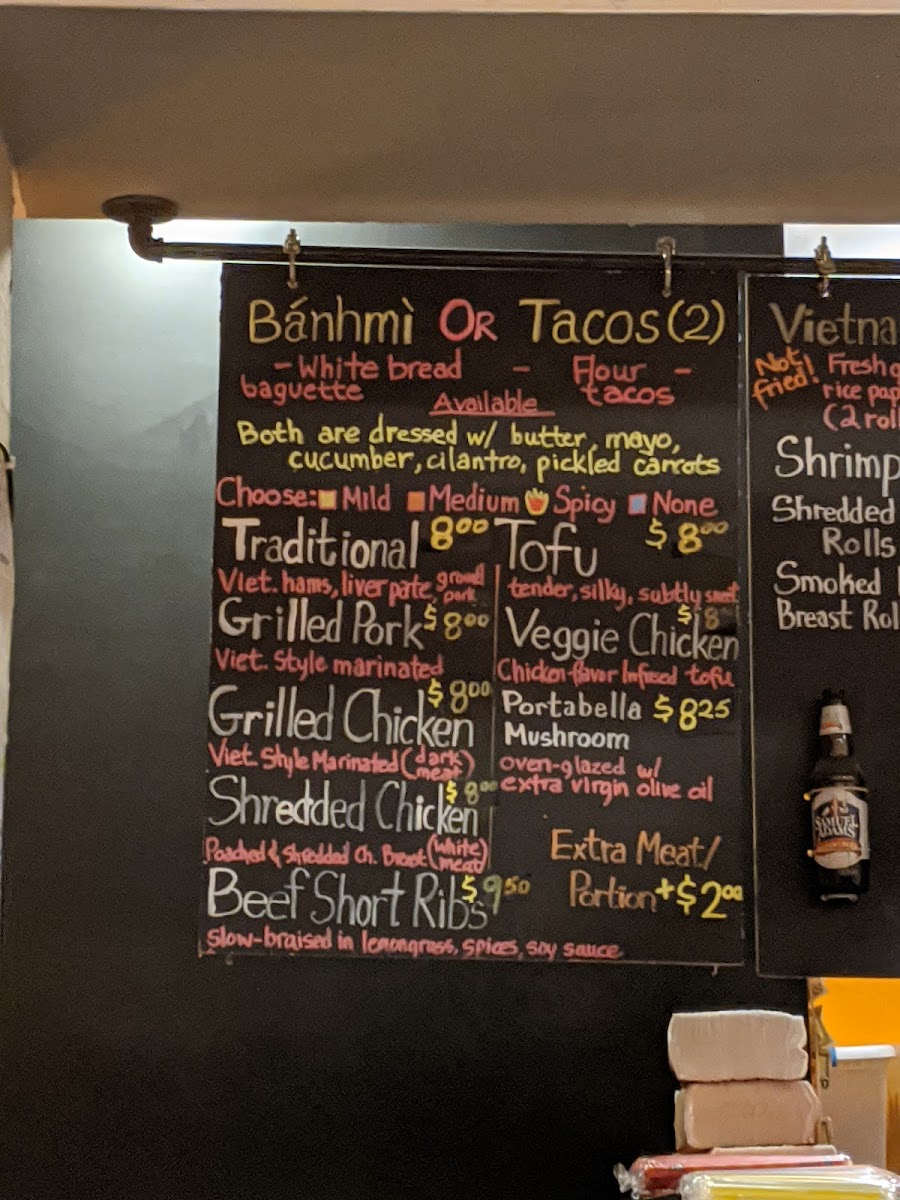 Bánhmì OR Tacos (2)
- White bread - Flour -
baguette tacos
Available
Both are dressed w/ butter, mayo,
cucumber, cilantro, pickled carrots
Choose: Mild Medium Spicy None
Traditional 8.00
Viet. hams, liver pate, ground pork
Grilled Pork $8.00
Viet. Style marinated
Grilled Chicken $8.00
Viet. Style Marinated (dark meat)
Shredded Chicken $8.00
Poached & Shredded Ch. Breast (white meat)
Beef Short Ribs $9.50
Slow-braised in lemongrass, spices, soy sauce
Tofu $8.00
tender, silky, subtly sweet
Veggie Chicken $8
Chicken-flavor Infused tofu
Portabella $8.25
Mushroom
oven-glazed w/
extra virgin olive oil
Extra Meat/
Portion +$2.00
Vietna
Not fried!
Fresh
rice pap
(2 roll
Shrimp
Shredded
Rolls
Smoked
Breast Rol
SAMUEL
ADAMS